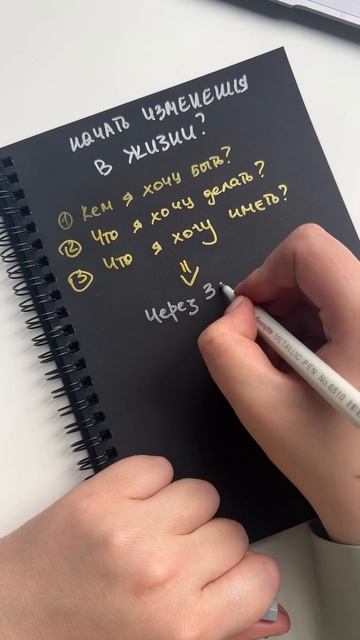 НАЧАТЬ ИЗМЕНЕНИЯ
В ЖИЗНИ?
① Кем я хочу быть?
② Что я хочу делать?
③ Что я хочу иметь?
через 3
METALLIC PEN No 6510